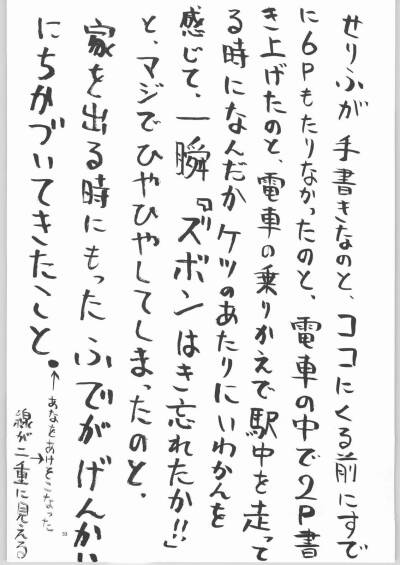 せりふが手書きなのと、ココにくる前にすで
に6Pもたりなかったのと、電車の中で2P書
き上げたのと、電車の乗りかえで駅中を走って
る時になんだかケツのあたりにいわかんを
感じて、一瞬『ズボンはき忘れたか!!』
と、マジでひやひやしてしまったのと.
家を出る時にもったふでがげんかい
にちかづいてきたこと。
↑あなをあけそこなった
線が二重に見える
→
33